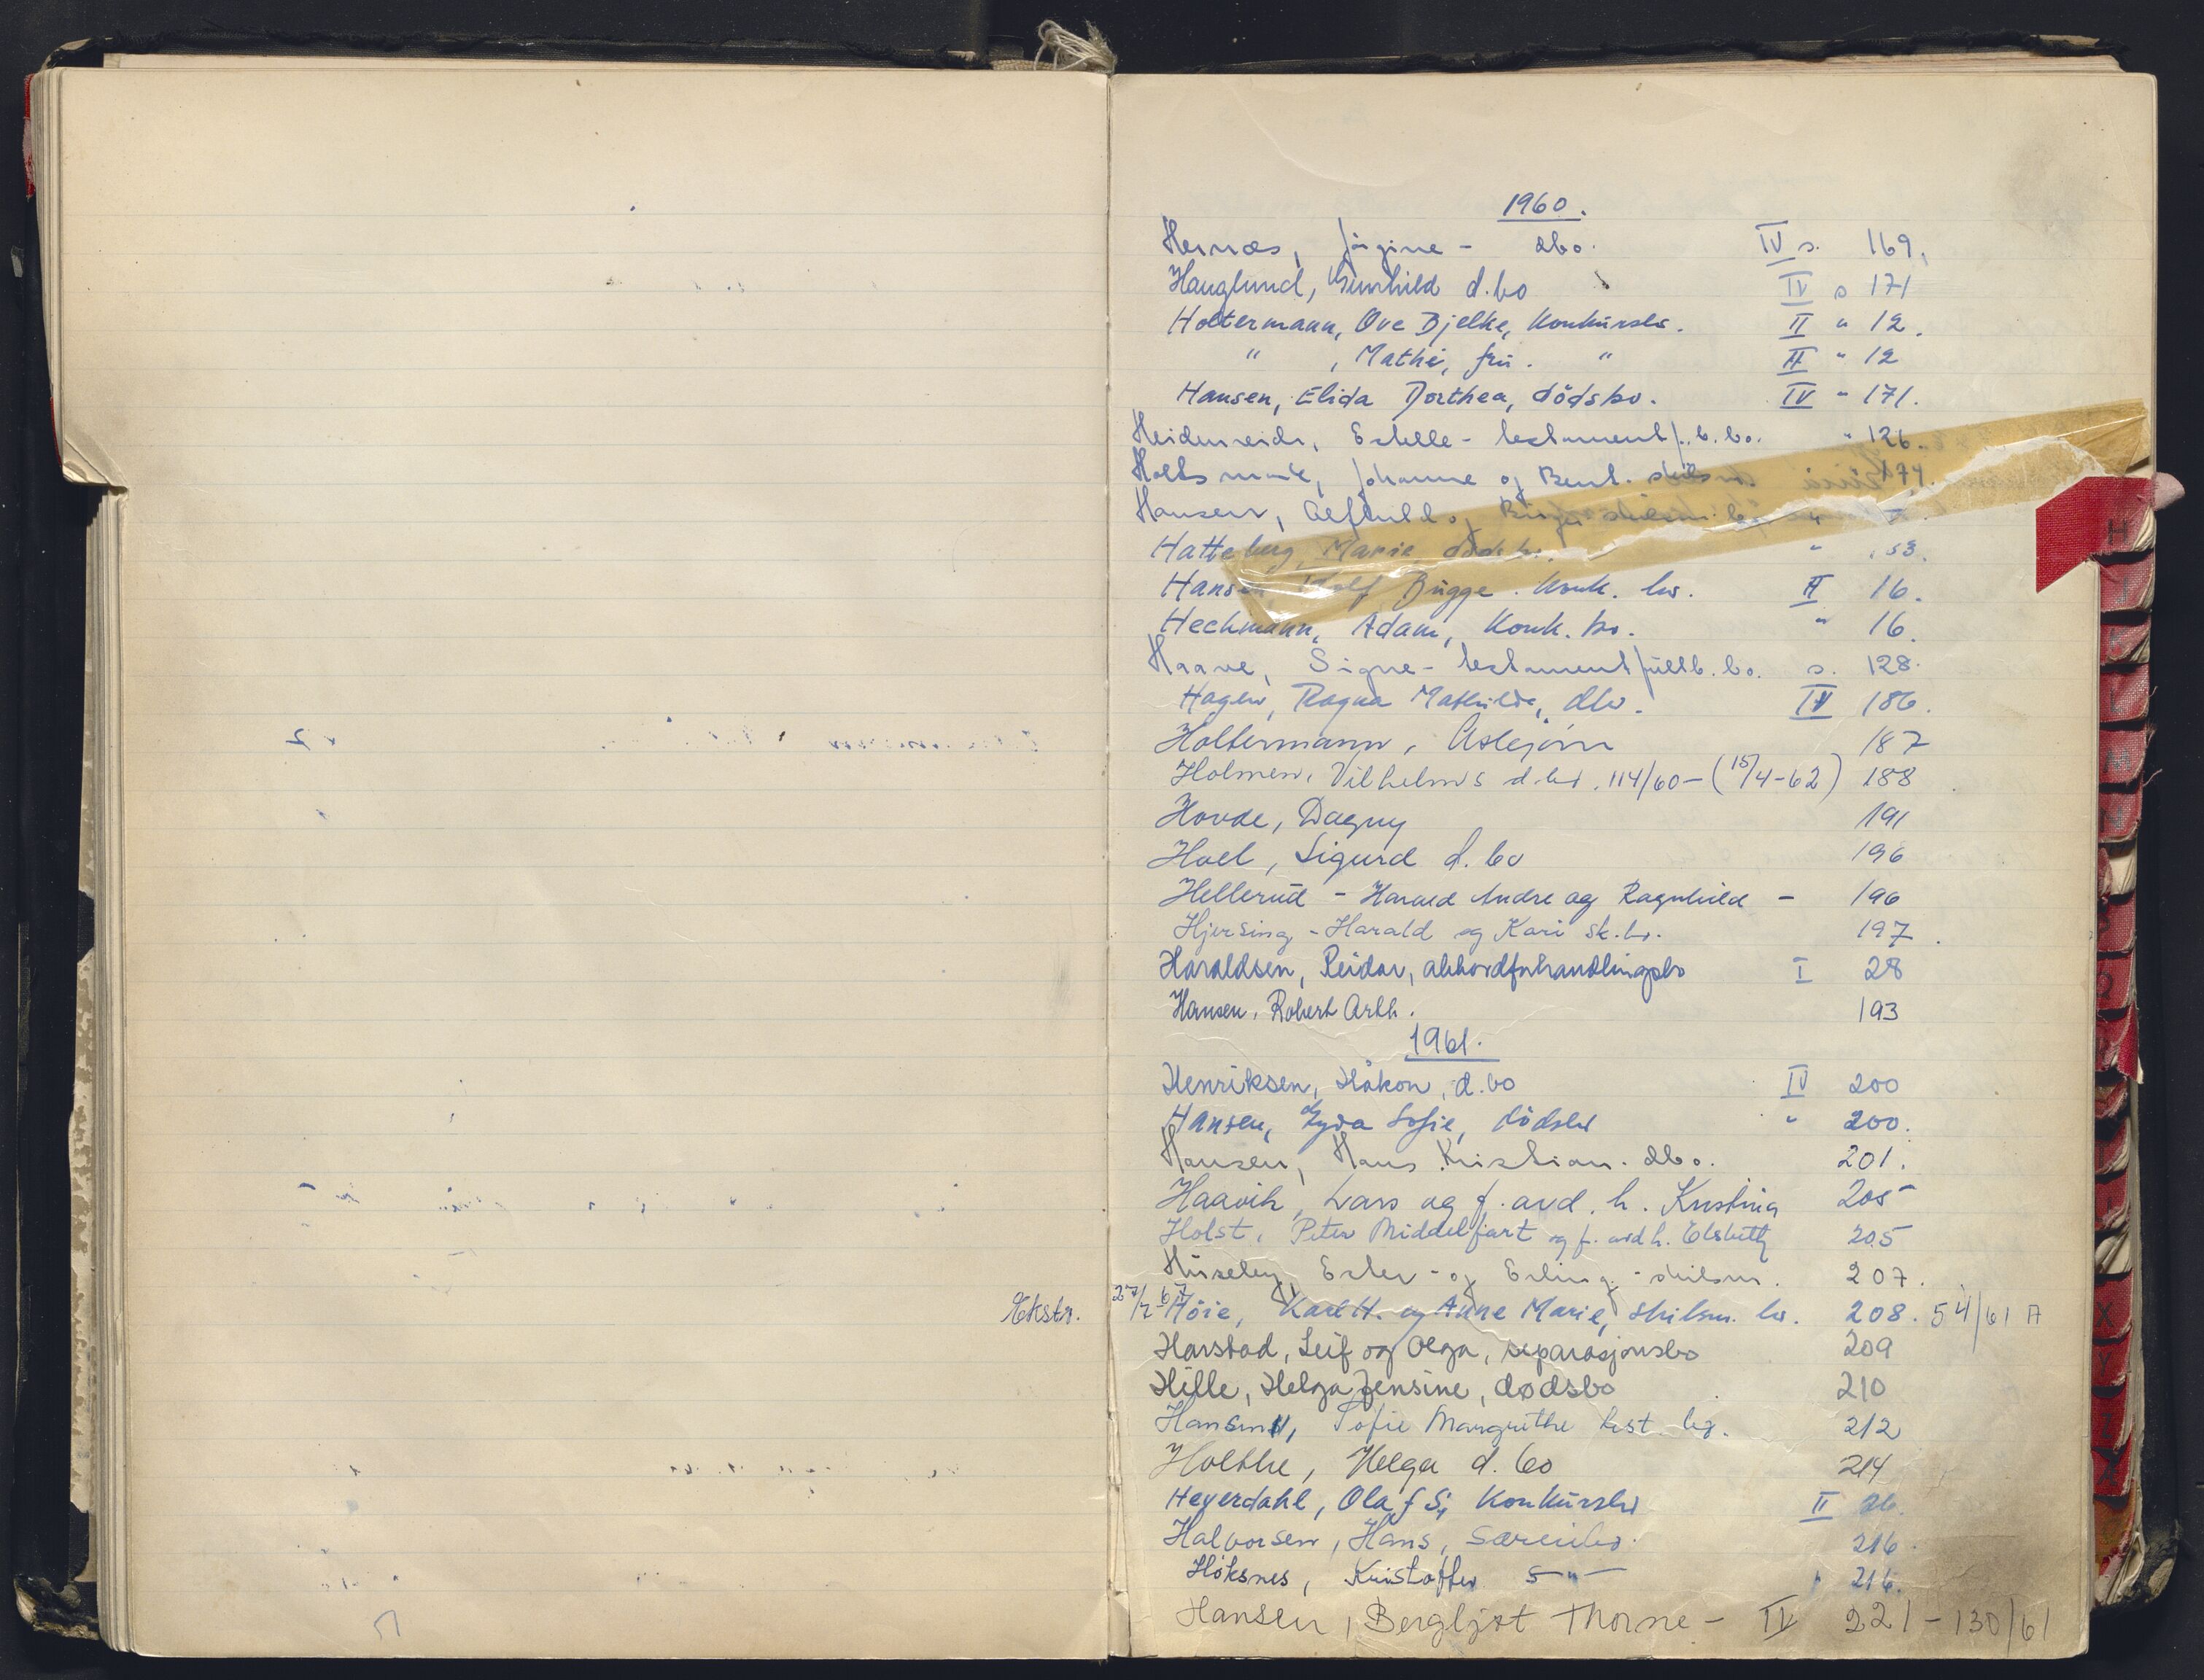 1960.
Hernæs, Jörgine - dbo. IV s. 169.
Hauglund, Gunhild d.bo IV s 171
Holtermann, Ove Bjelke, Konkursbo. II " 12.
" , Mathi, fru. " II " 12
Hansen, Elida Dorthea, dödsbo. IV " 171.
Heidenreich, Estelle - testamentf.b.bo. " 126.
Johanne og Bent. skilsm. 174.
Hansen, Alfhild og Birger skilsm.
Hatteberg, Marie dödsbo. "
Hansen Bugge. Konk. bo. II 16.
Heckmann, Adam, Konk. bo. " 16.
Haave, Signe - testamentfullb.bo. s. 128.
Hagen, Ragna Mathilde, dbo. IV 186.
Holtermann, Asbjørn 187
Holmen, Vilhelms d.bo. 114/60 - (15/4-62) 188
Hovde, Dagny 191
Hoel, Sigurd d.bo 196
Hellerud - Harald Andre og Ragnhild - 196
Hjersing - Harald og Kari sk.bo. 197.
Haraldsen, Reidar, akkordforhandlingsbo I 28
Hansen, Robert Arth. 193
1961.
Henriksen, Håkon, d.bo IV 200
Hansen, Lyda Sofie, dödsbo " 200.
Hansen, Hans Kristian. dbo. 201.
Haavik, Lars og f. avd. h. Kristina 205
Holst, Peter Middelfart og f. avd h. Elsbeth 205
Huseby, Ester - og Erling - skilsm. 207.
Ekstr. 27/2 67 Höie, Karl H. og Anne Marie, skilsm. bo. 208. 54/61 A
Harstad, Leif og Olga, separasjonsbo 209
Hille, Helga Jensine, dødsbo 210
Hansen, Sofie Margrethe test. bo. 212
Holthe, Helga d.bo 214
Heyerdahl, Olaf S, Konkursbo II 26.
Halvorsen, Hans, særeiebo. 216.
Höksnes, Kristoffer S-"- " 216.
Hansen, Bergljot Thorne - IV 221 - 130/61
H